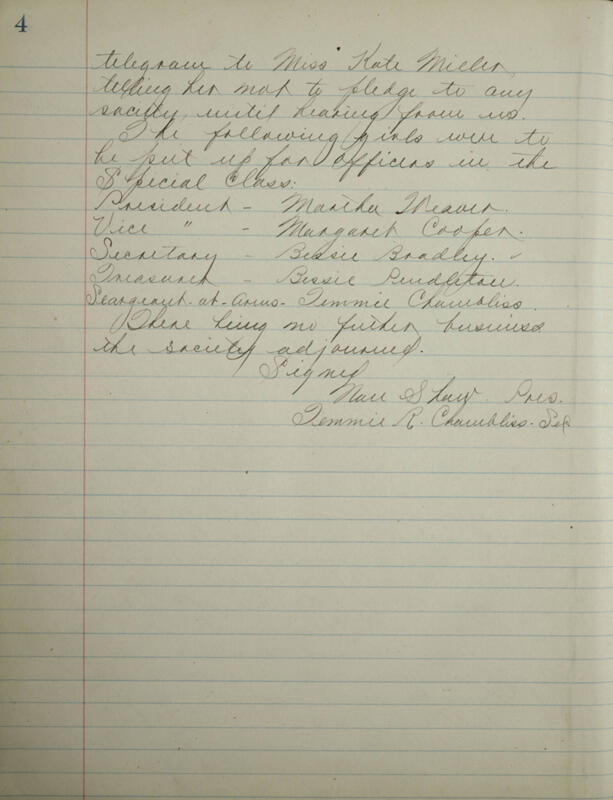 4
telegram to Miss Kate Miller,
telling her not to pledge to any
society until hearing from us.
The following girls were to
be put up for officers in the
Special Class:
President - Martha Weaver.
Vice " - Margaret Cooper.
Secretary - Bessie Bradley.
Treasurer - Bessie Pendleton.
Seargeant-at-arms- Temmie Chambliss.
There being no further business
the society adjourned.
Signed
Nan Shaw Pres.
Temmie R. Chambliss- Sec